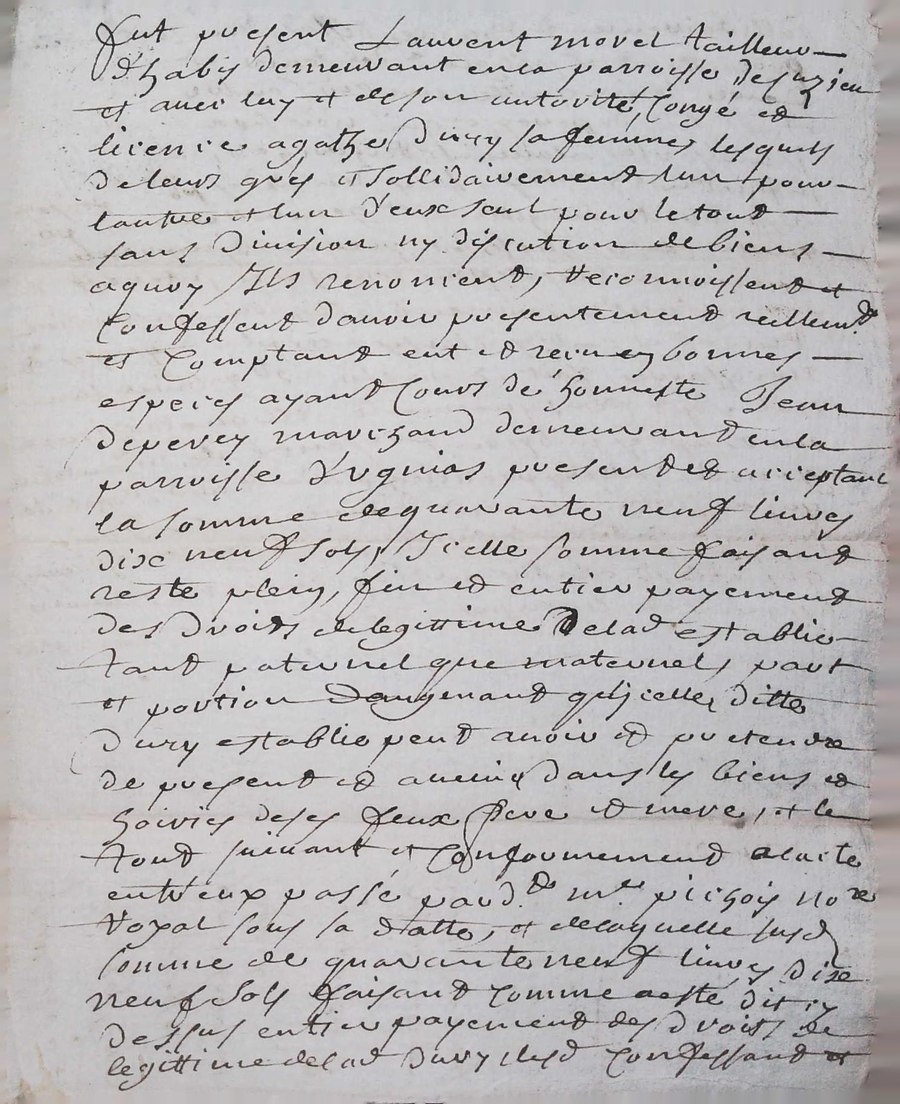 fut present Laurent morel tailleur
d'habis demeurant en la parroisse de suzieu
et avec luy et de son autorité, Congé et
licence agathe Dury sa femme lesquels
de leurs grés et sollidairement lun pour
lautre et lun d'eux seul pour le tout
sans Division ny discution de biens
a quoy Ils renoncent, reconnoissent et
Confessent d'avoir presentement reellem.t
et Comptant eut et receu en bonnes
especes ayant Cours de honneste Jean
deperey marchand demeurant en la
parroisse d'ugnias present et acceptant
la somme de quarante neuf livres
dix neuf sols, Icelle somme faisant
reste plein, fin et entier payement
des Droits de legittime De lad establie
tant paternel que maternels part
et portion daugmant qu'icelle ditte
Dury establie peut avoir et pretendre
de present et avenir dans les biens et
hoiries de ses feux pere et mere, et le
tout suivant et Conformement a lacte
entr'eux passé par d. me pichois nore
Royal sous sa datte, et de laquelle susd
somme de quarante neuf livres dix
neuf sols faisant Comme a esté dit cy
dessus entier payement des droits de
legittime de lad Dury lesd Confessant et